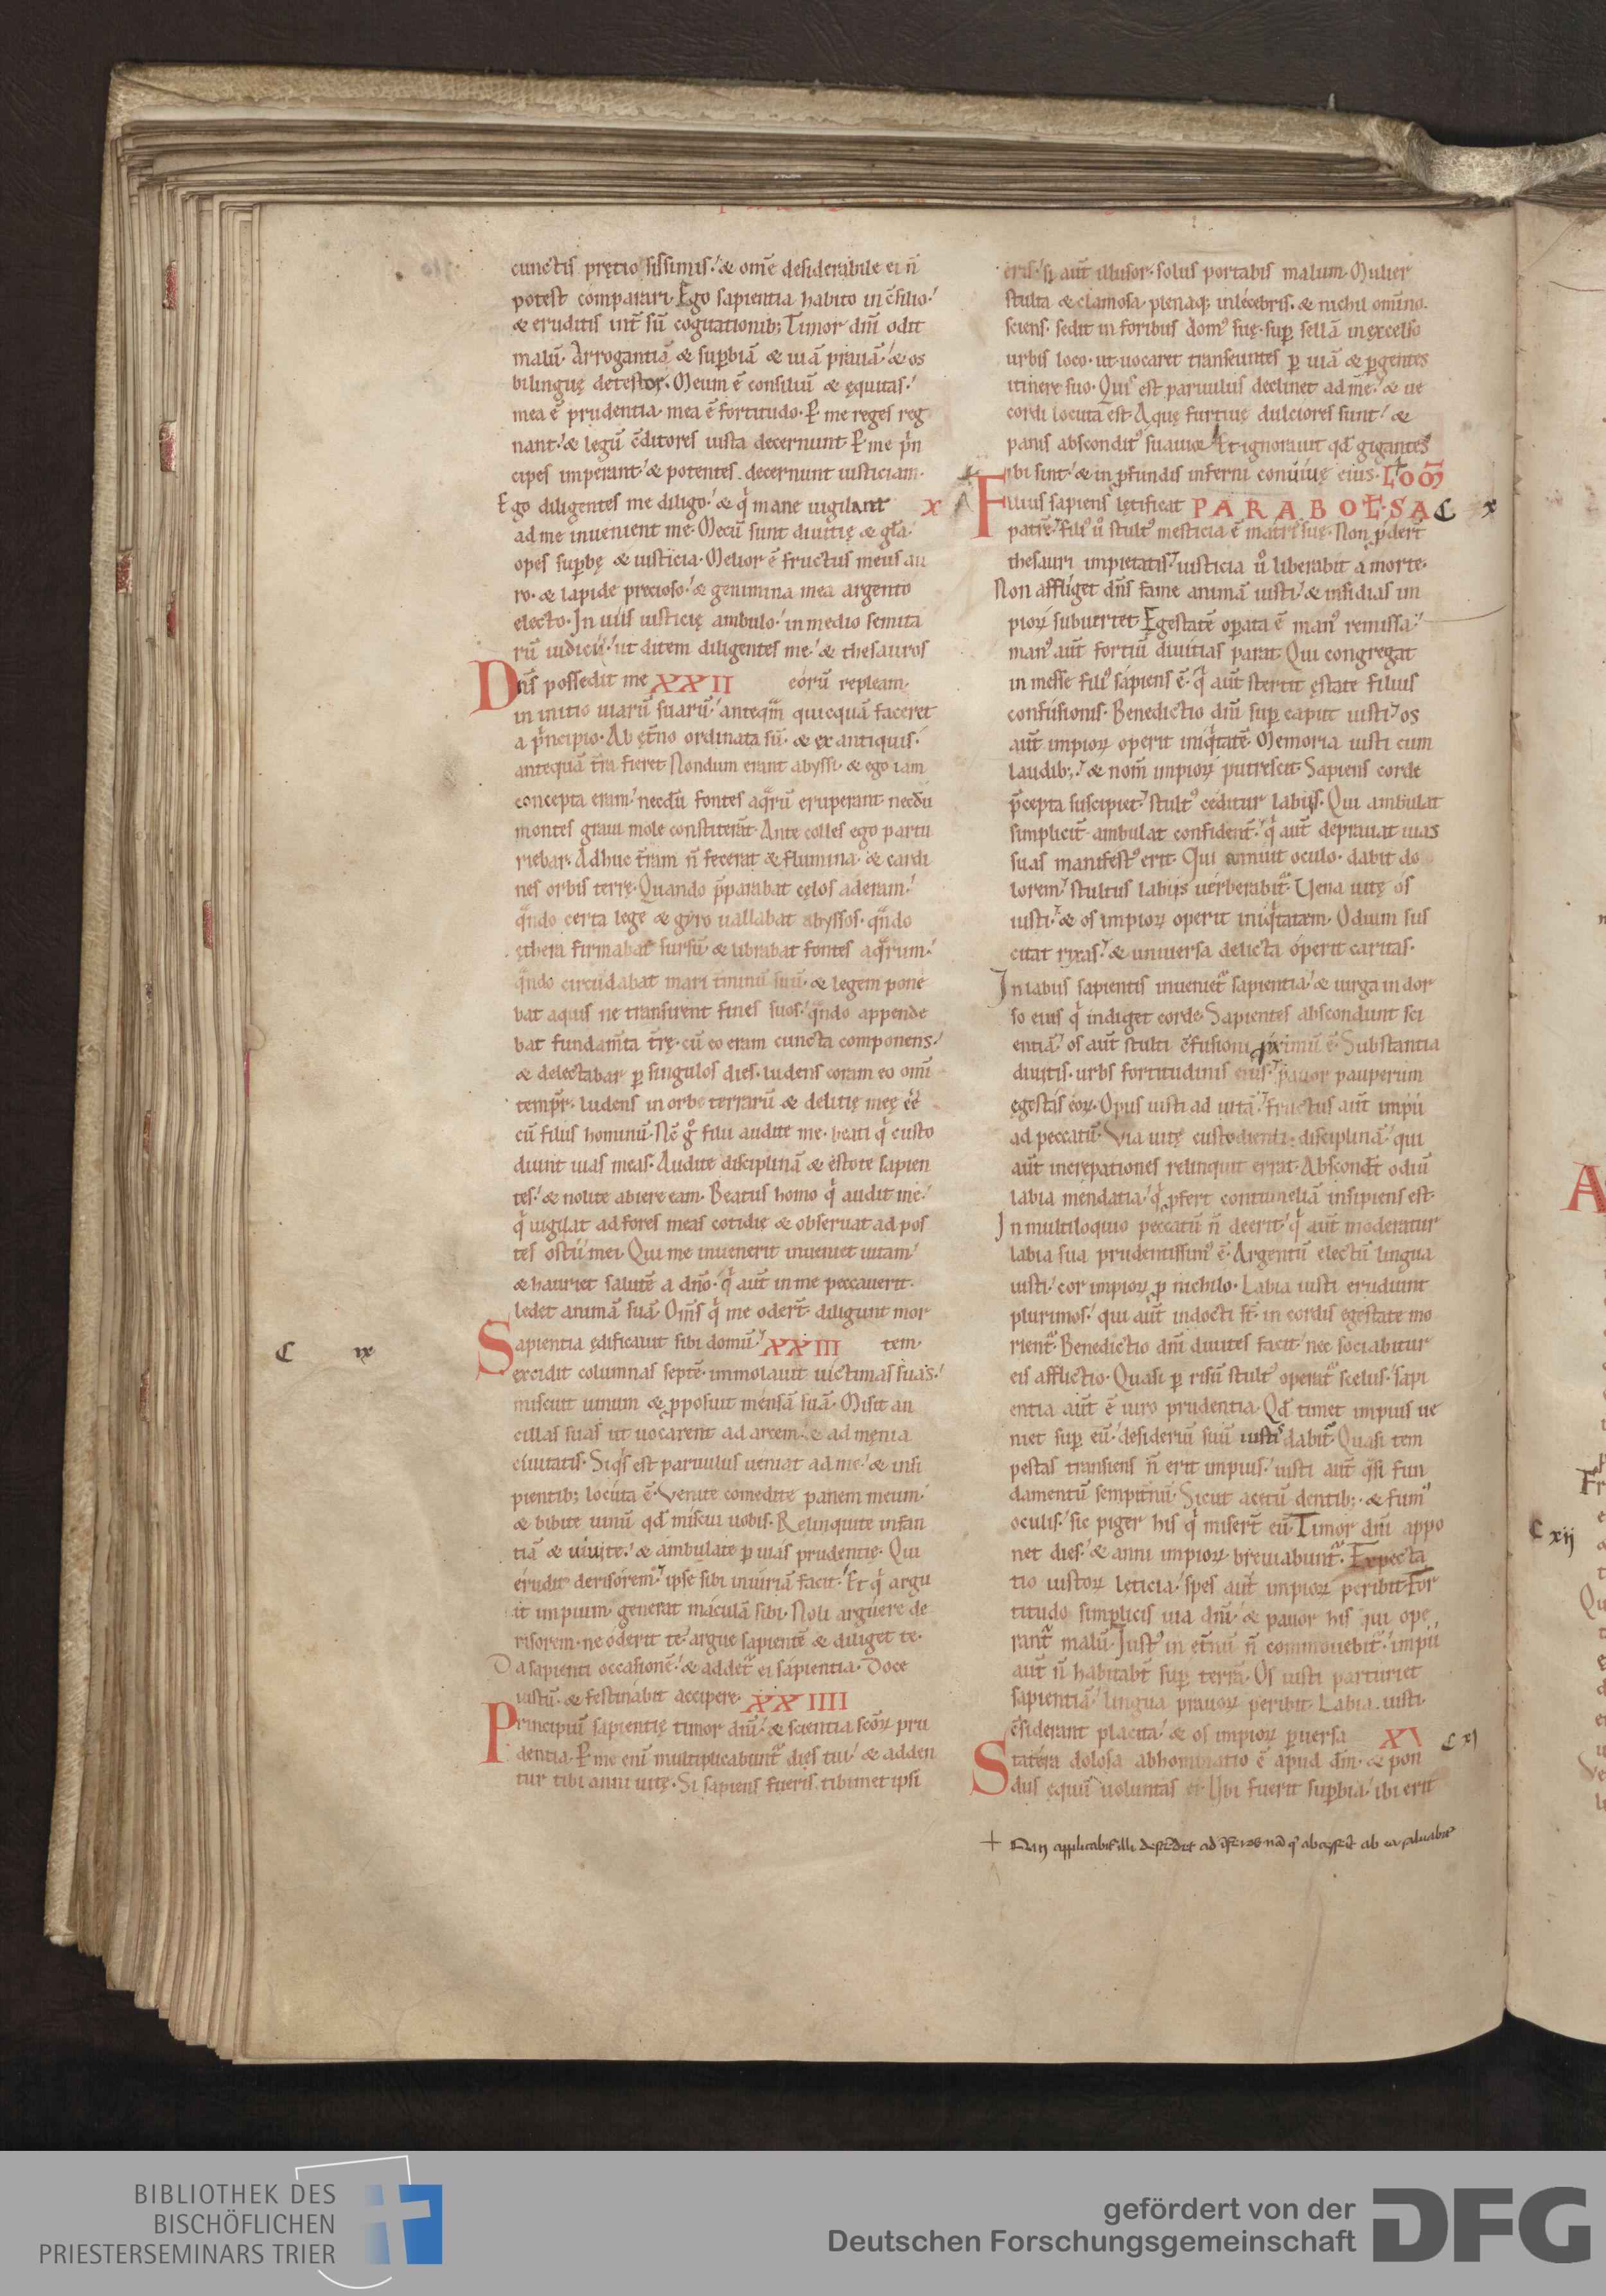 cunctis pretiosissimis. & om̄e desiderabile ei n̄
potest comparari. Ego sapientia habito in c̄silio.
& eruditis int̄ sū cogitationib; Timor dn̄i odit
malū. Arrogantiā & sup̄biā & uiā prauā. & os
bilinguę detestor. Meum ē consiliū & ęquitas.
mea ē prudentia. mea ē fortitudo. P̱ me reges reg
nant. & legū c̄ditores iusta decernunt. P̱ me p̄n
cipes imperant. & potentes decernunt iusticiam.
Ego diligentes me diligo. & q̇ mane uigilant x
ad me inuenient me. Mecū sunt diuitię & gl̄a.
opes sup̄bę & iusticia. Melior ē fructus meus au
ro. & lapide precioso. & genimina mea argento
electo. In uiis iusticię ambulo. in medio semita
rū iudicii. ut ditem diligentes me. & thesauros
Dn̄s possedit me XXII eorū repleam.
in initio uiarū suarū. anteq̄m quicquā faceret
a p̄ncipio. Ab et̄no ordinata sū. & ex antiquis.
antequā t̄ra fieret. Nondum erant abyssi. & ego iam
concepta eram. necdū fontes aq̄rū eruperant. necdū
montes graui mole constiterāt. Ante colles ego partu
riebar. Adhuc t̄ram n̄ fecerat & flumina. & cardi
nes orbis terrę. Quando p̄parabat cęlos aderam.
q̄ndo certa lege & gyro uallabat abyssos. q̄ndo
ęthera firmabat sursū. & librabat fontes aq̄rum.
q̄ndo circūdabat mari t̄minū suū. & legem pone
bat aquis ne transirent fines suos. q̄ndo appende
bat fundam̄ta t̄rę. cū eo eram cuncta componens.
& delectabar p̱ singulos dies. ludens coram eo om̄i
tempr̄. ludens in orbe terrarū & delitię meę ēē
cū filiis hominū. Nc̄ g̊ filii audite me. beati q̇ custo
diunt uias meas. Audite disciplinā & estote sapien
tes. & nolite abicere eam. Beatus homo q̇ audit me.
q̇ uigilat ad fores meas cotidię & obseruat ad pos
tes ostii mei. Qui me inuenerit inueniet uitam.
& hauriet salutē a dn̄o. q̇ aut̄ in me peccauerit.
ledet animā suā. Om̄s q̇ me odert̄. diligunt mor
Sapientia ędificauit sibi domū. XXIII tem.
C ix
excidit columnas septē. immolauit uictimas suas.
miscuit uinum & p̱posuit mensā suā. Misit an
cillas suas ut uocarent ad arcem. & ad męnia
ciuitatis. Siq̇s est paruulus ueniat ad me. & insi
pientib; locuta ē. Venite comedite panem meum.
& bibite uinū qd̄ miscui uobis. Relinquite infan
tiā & uiuite. & ambulate p̱ uias prudentię. Qui
erudit derisorem. ipse sibi iniuriā facit. Et q̇ argu
it impium. generat maculā sibi. Noli arguere de
risorem. ne oderit te. argue sapientē & diliget te.
Da sapienti occasionē. & addet̄ ei sapientia. Doce
iustū. & festinabit accipere. XXIIII
Principiū sapientię timor dn̄i. & scientia sc̄oꝝ pru
dentia. P̱ me enī multiplicabunt̄ dies tui. & adden
tur tibi anni uitę. Si sapiens fueris. tibimet ipsi
eris. si aut̄ illusor. solus portabis malum. Mulier
stulta & clamosa. plenaq; inlecebris. & nichil om̄no
sciens. sedit in foribus domꝰ suę. sup̱ sellā in excelso
urbis loco. ut uocaret transeuntes p̱ uiā & p̱gentes
itinere suo. Quis est paruulus declinet ad me. & ue
cordi locuta est. Aquę furtiuę dulciores sunt. &
panis absconditꝰ suauior. Et ignorauit qd̄ gigantes
ibi sint. & in p̱fundis inferni conuiuię eius. LOOM̄
Filius sapiens lętificat PARABOLE·SA C x
patrē. filiꝰ ů stultꝰ mesticia ē matris suę. Non p̱dert̄
thesauri impietatis. iusticia ů liberabit a morte.
Non affliget dn̄s fame animā iusti. & insidias im
pioꝝ subuertet. Egestatē opata ē manꝰ remissa.
manꝰ aut̄ fortiū diuitias parat. Qui congregat
in messe filiꝰ sapiens ē. q̇ aut̄ stertit ęstate filius
confusionis. Benedictio dn̄i sup̱ caput iusti. os
aut̄ impioꝝ operit iniq̇tatē. Memoria iusti cum
laudib;. & nom̄ impioꝝ putrescit. Sapiens corde
p̄cepta suscipiet. stultꝰ ceditur labiis. Qui ambulat
simplicit̄ ambulat confident̄. q̇ aut̄ deprauat uias
suas manifestꝰ erit. Qui annuit oculo. dabit do
lorem. stultus labiis uerberabit̄. Vena uitę os
iusti. & os impioꝝ operit iniq̇tatem. Odium sus
citat rixas. & uniuersa delicta operit caritas.
In labiis sapientis inueniet̄ sapientia. & uirga in dor
so eius q̇ indiget corde. Sapientes abscondunt sci
entiā. os aut̄ stulti c̄fusioni p̱ximū ē. Substantia
diuitis. urbs fortitudinis eius. pauor pauperum
egestas eoꝝ. Opus iusti ad uitā. fructus aut̄ impii
ad peccatū. Via uitę custodienti disciplinā. qui
aut̄ increpationes relinquit errat. Abscondt̄ odiū
labia mendatia. q̇ p̱fert contumeliā insipiens est.
In multiloquio peccatū n̄ deerit. q̇ aut̄ moderatur
labia sua prudentissimꝰ ē. Argentū electū lingua
iusti. cor impioꝝ p̱ nichilo. Labia iusti erudiunt
plurimos. qui aut̄ indocti st̄. in cordis egestate mo
rient̄. Benedictio dn̄i diuites facit. nec sociabitur
eis afflictio. Quasi p̱ risū stultꝰ operat̄ scelus. sapi
entia aut̄ ē uiro prudentia. Qd̄ timet impius ue
niet sup̱ eū. desideriū suū iustis dabit̄. Quasi tem
pestas transiens n̄ erit impius. iusti aut̄ q̄si fun
damentū sempit̄nū. Sicut acetū dentib;. & fumꝰ
oculis. sic piger his q̇ misert̄ eū. Timor dn̄i appo
net dies. & anni impioꝝ breuiabunt̄. Expecta
tio iustoꝝ leticia. spes aut̄ impioꝝ peribit. For
titudo simplicis uia dn̄i. & pauor his qui ope
rant̄ malū. Iustꝰ in et̄nū n̄ commouebit̄. impii
aut̄ n̄ habitabt̄ sup̱ terrā. Os iusti parturiet
sapientiā. lingua prauoꝝ peribit. Labia iusti
c̄siderant placita. & os impioꝝ p̱uersa XI C xi
Statera dolosa abhominatio ē apud dm̄. & pon
dus equū uoluntas ei. Ubi fuerit sup̱bia. ibi erit
C xij
BIBLIOTHEK DES
BISCHÖFLICHEN
PRIESTERSEMINARS TRIER
gefördert von der
Deutschen Forschungsgemeinschaft
DFG